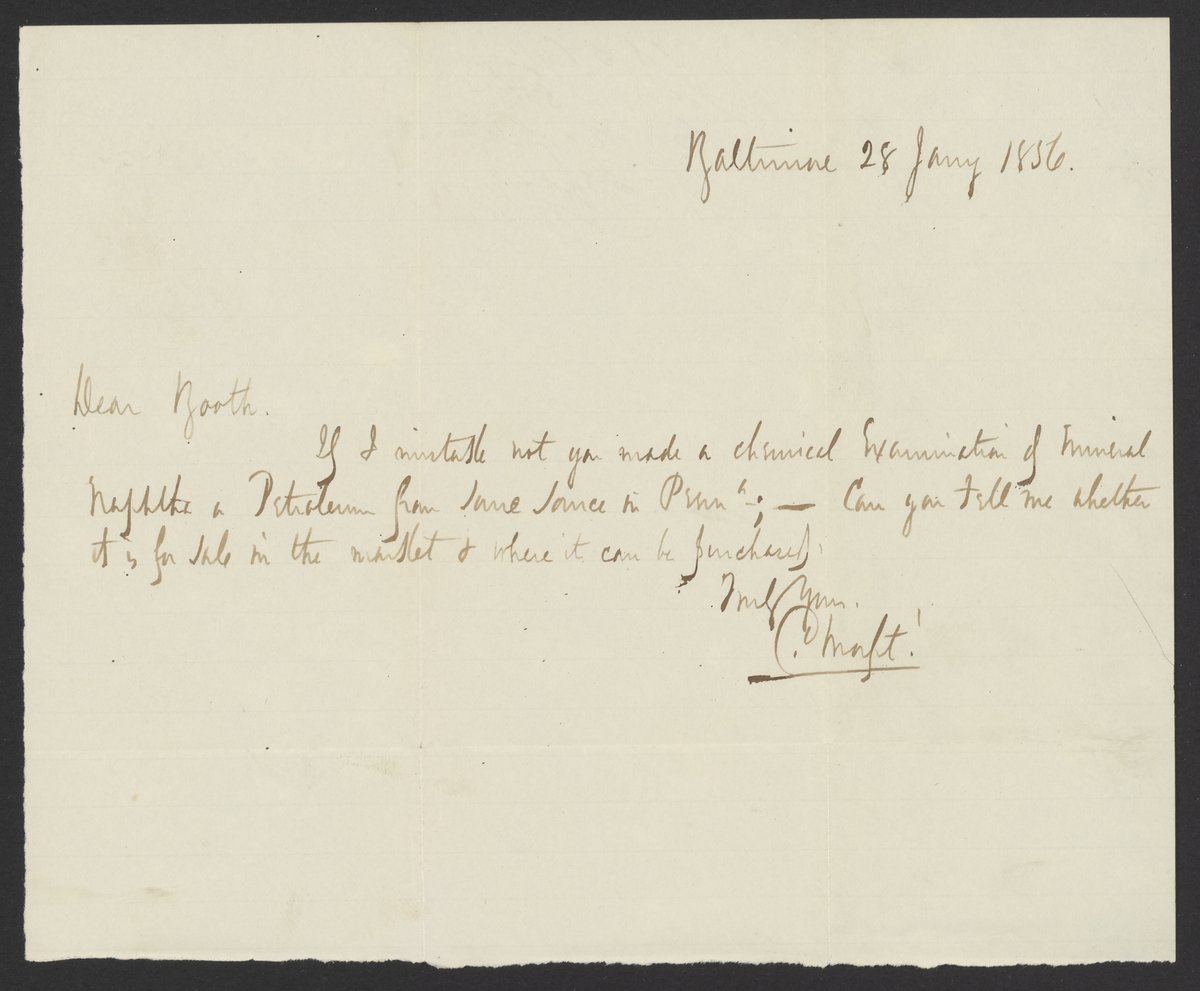 Baltimore 28 Jany 1856.
Dear Booth.
If I mistake not you made a chemical Examination of Mineral
Naphtha or Petroleum from some source in Penna; — Can you tell me whether
it is for sale in the market & where it can be purchased,
Truly Yours.
C.